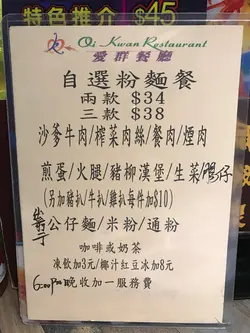 特色推介 $45
Oi Kwan Restaurant
愛群餐廳
自選粉麵餐
兩款 $34
三款 $38
沙爹牛肉/榨菜肉絲/餐肉/煙肉
煎蛋/火腿/豬柳漢堡/生菜/腸仔
(另加豬扒/牛扒/雞扒每件加$10)
公仔麵/米粉/通粉
咖啡或奶茶
凍飲加3元/椰汁紅豆冰加8元
6:00pm晚收加一服務費